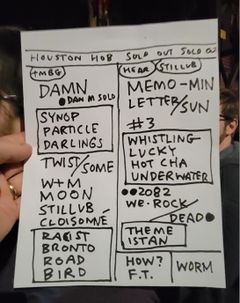 HOUSTON HOB SOLD OUT SOLO
TMBG
DAMN
DAN M SOLO
SYNOP
PARTICLE
DARLINGS
TWIST/SOME
W+M
MOON
STILLUB
CLOISONNÉ
RABIST
BRONTO
ROAD
BIRD
HEAR STILLUB
MEMO-MIN
LETTER/SUN
#3
WHISTLING
LUCKY
HOT CHA
UNDERWATER
2082
WE·ROCK/DEAD
THEME
ISTAN
HOW?
F.T.
WORM